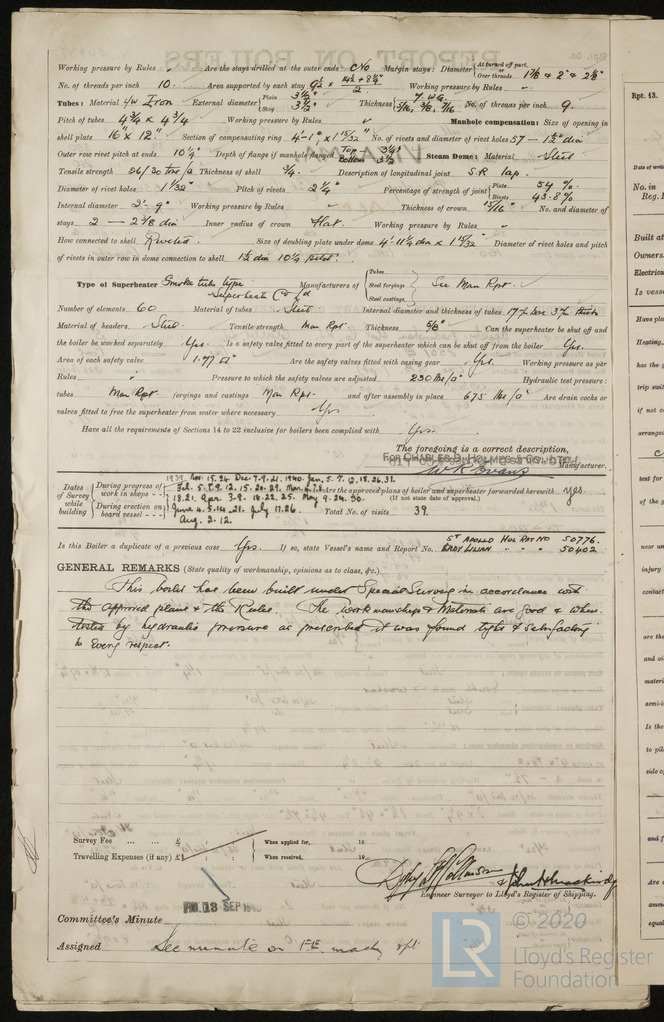 Working pressure by Rules ✓ Are the stays drilled at the outer ends No Margin stays: Diameter { At turned off part, Over threads 1⅞ & 2" & 2⅛"
No. of threads per inch 10. Area supported by each stay Working pressure by Rules
Tubes: Material Iron External diameter { Plain 3½" Stay 3½" Thickness { 7 W.G. 5/16, 3/8, 7/16 No. of threads per inch 9.
Pitch of tubes 4¾ x 4¾ Working pressure by Rules ✓ Manhole compensation: Size of opening in
shell plate 16" x 12" Section of compensating ring No. of rivets and diameter of rivet holes 57
Outer row rivet pitch at ends 10¼" Depth of flange if manhole flanged Top 3¼" Bottom 3½ Steam Dome: Material Steel
Tensile strength 26/30 tons/□ Thickness of shell ¾. Description of longitudinal joint S.R. lap.
Diameter of rivet holes 1 1/32" Pitch of rivets 2¼" Percentage of strength of joint { Plate 54 % Rivets 43.8%
Internal diameter 2'-9" Working pressure by Rules Thickness of crown 15/16" No. and diameter of
stays 2 — 2⅜ dia Inner radius of crown Flat. Working pressure by Rules
How connected to shell Riveted. Size of doubling plate under dome Diameter of rivet holes and pitch
of rivets in outer row in dome connection to shell 1½ dia 10¼ pitch.
Type of Superheater Smoke tube type Superheater Co Ld Manufacturers of { Tubes Steel forgings Steel castings, } See Man Rpt.
Number of elements 60 Material of tubes Steel Internal diameter and thickness of tubes
Material of headers Steel. Tensile strength Man Rpt. Thickness 5/8" Can the superheater be shut off and
the boiler be worked separately Yes. Is a safety valve fitted to every part of the superheater which can be shut off from the boiler Yes.
Area of each safety valve 1.77 □" Are the safety valves fitted with easing gear Yes. Working pressure as per
Rules Pressure to which the safety valves are adjusted 230 lbs/□" Hydraulic test pressure:
tubes Man Rpt. forgings and castings Man Rpt. and after assembly in place 675 lbs/□" Are drain cocks or
valves fitted to free the superheater from water where necessary Yes
Have all the requirements of Sections 14 to 22 inclusive for boilers been complied with Yes.
The foregoing is a correct description,
For CHARLES D. HOLMES & CO., LTD.
W R Evans Manufacturer.
Dates of Survey while building { During progress of work in shops - - 1939. Nov. 15. 24. Dec. 7. 9. 21. 1940. Jan. 5. 9. 12. 18. 26. 31.
Feb. 5. 7. 9. 12. 15. 20. 29. Are the approved plans of boiler and superheater forwarded herewith yes.
18. 21. Apr. 3. 9. 18. 22. 25. May 9. 24. 30. (If not state date of approval.)
During erection on board vessel - - - June 4. 5. 14. 21. July 17. 26. Aug. 2. 12. Total No. of visits 39.
Is this Boiler a duplicate of a previous case Yes. If so, state Vessel's name and Report No. ST APOLLO HUL RPT NO 50776.
LADY LILIAN " " " 50402
GENERAL REMARKS (State quality of workmanship, opinions as to class, &c.)
This boiler has been built under Special Survey in accordance with
the approved plans & the Rules. The workmanship & materials are good & when
tested by hydraulic pressure as prescribed it was found tight & satisfactory
in every respect.
Survey Fee ... ... £ : : When applied for, 19
Travelling Expenses (if any) £ : : When received, 19
Engineer Surveyor to Lloyd's Register of Shipping.
Committee's Minute FRI. 13 SEP 1940
Assigned See minute on F.E. machy rpt
© 2020
LR
Lloyd's Register
Foundation
Rpt. 13.
Date of writ
No. in
Reg. 
Built at
Owners
Electrical
Is vesse
Have plan
Heating,
has the g
trip suit
if not c
arranged
test for
of the g
near un
injury
contact
are the
and oi
materi
semi-i
Is the
to pil
side o
and f
Are a
amme
equal